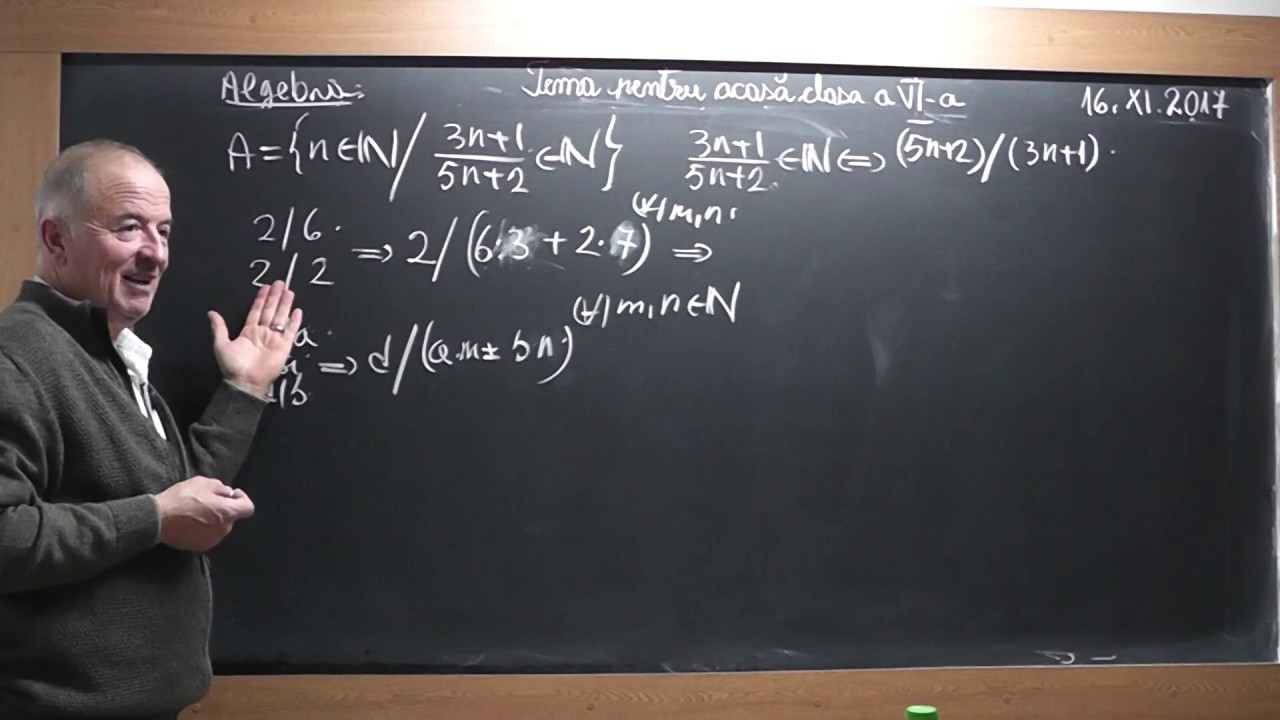 Algebra: Tema pentru acasă clasa a VI-a 16.XI.2017
A={n∈ℕ/ (3n+1)/(5n+2) ∈ℕ} (3n+1)/(5n+2) ∈ℕ ⇔ (5n+2)/(3n+1).
(∀) m,n.
2/6. ⇒ 2/(6·3 + 2·7) ⇒
2/2
(∀) m,n∈ℕ
a. ⇒ d/(a·m± b·n)
/b